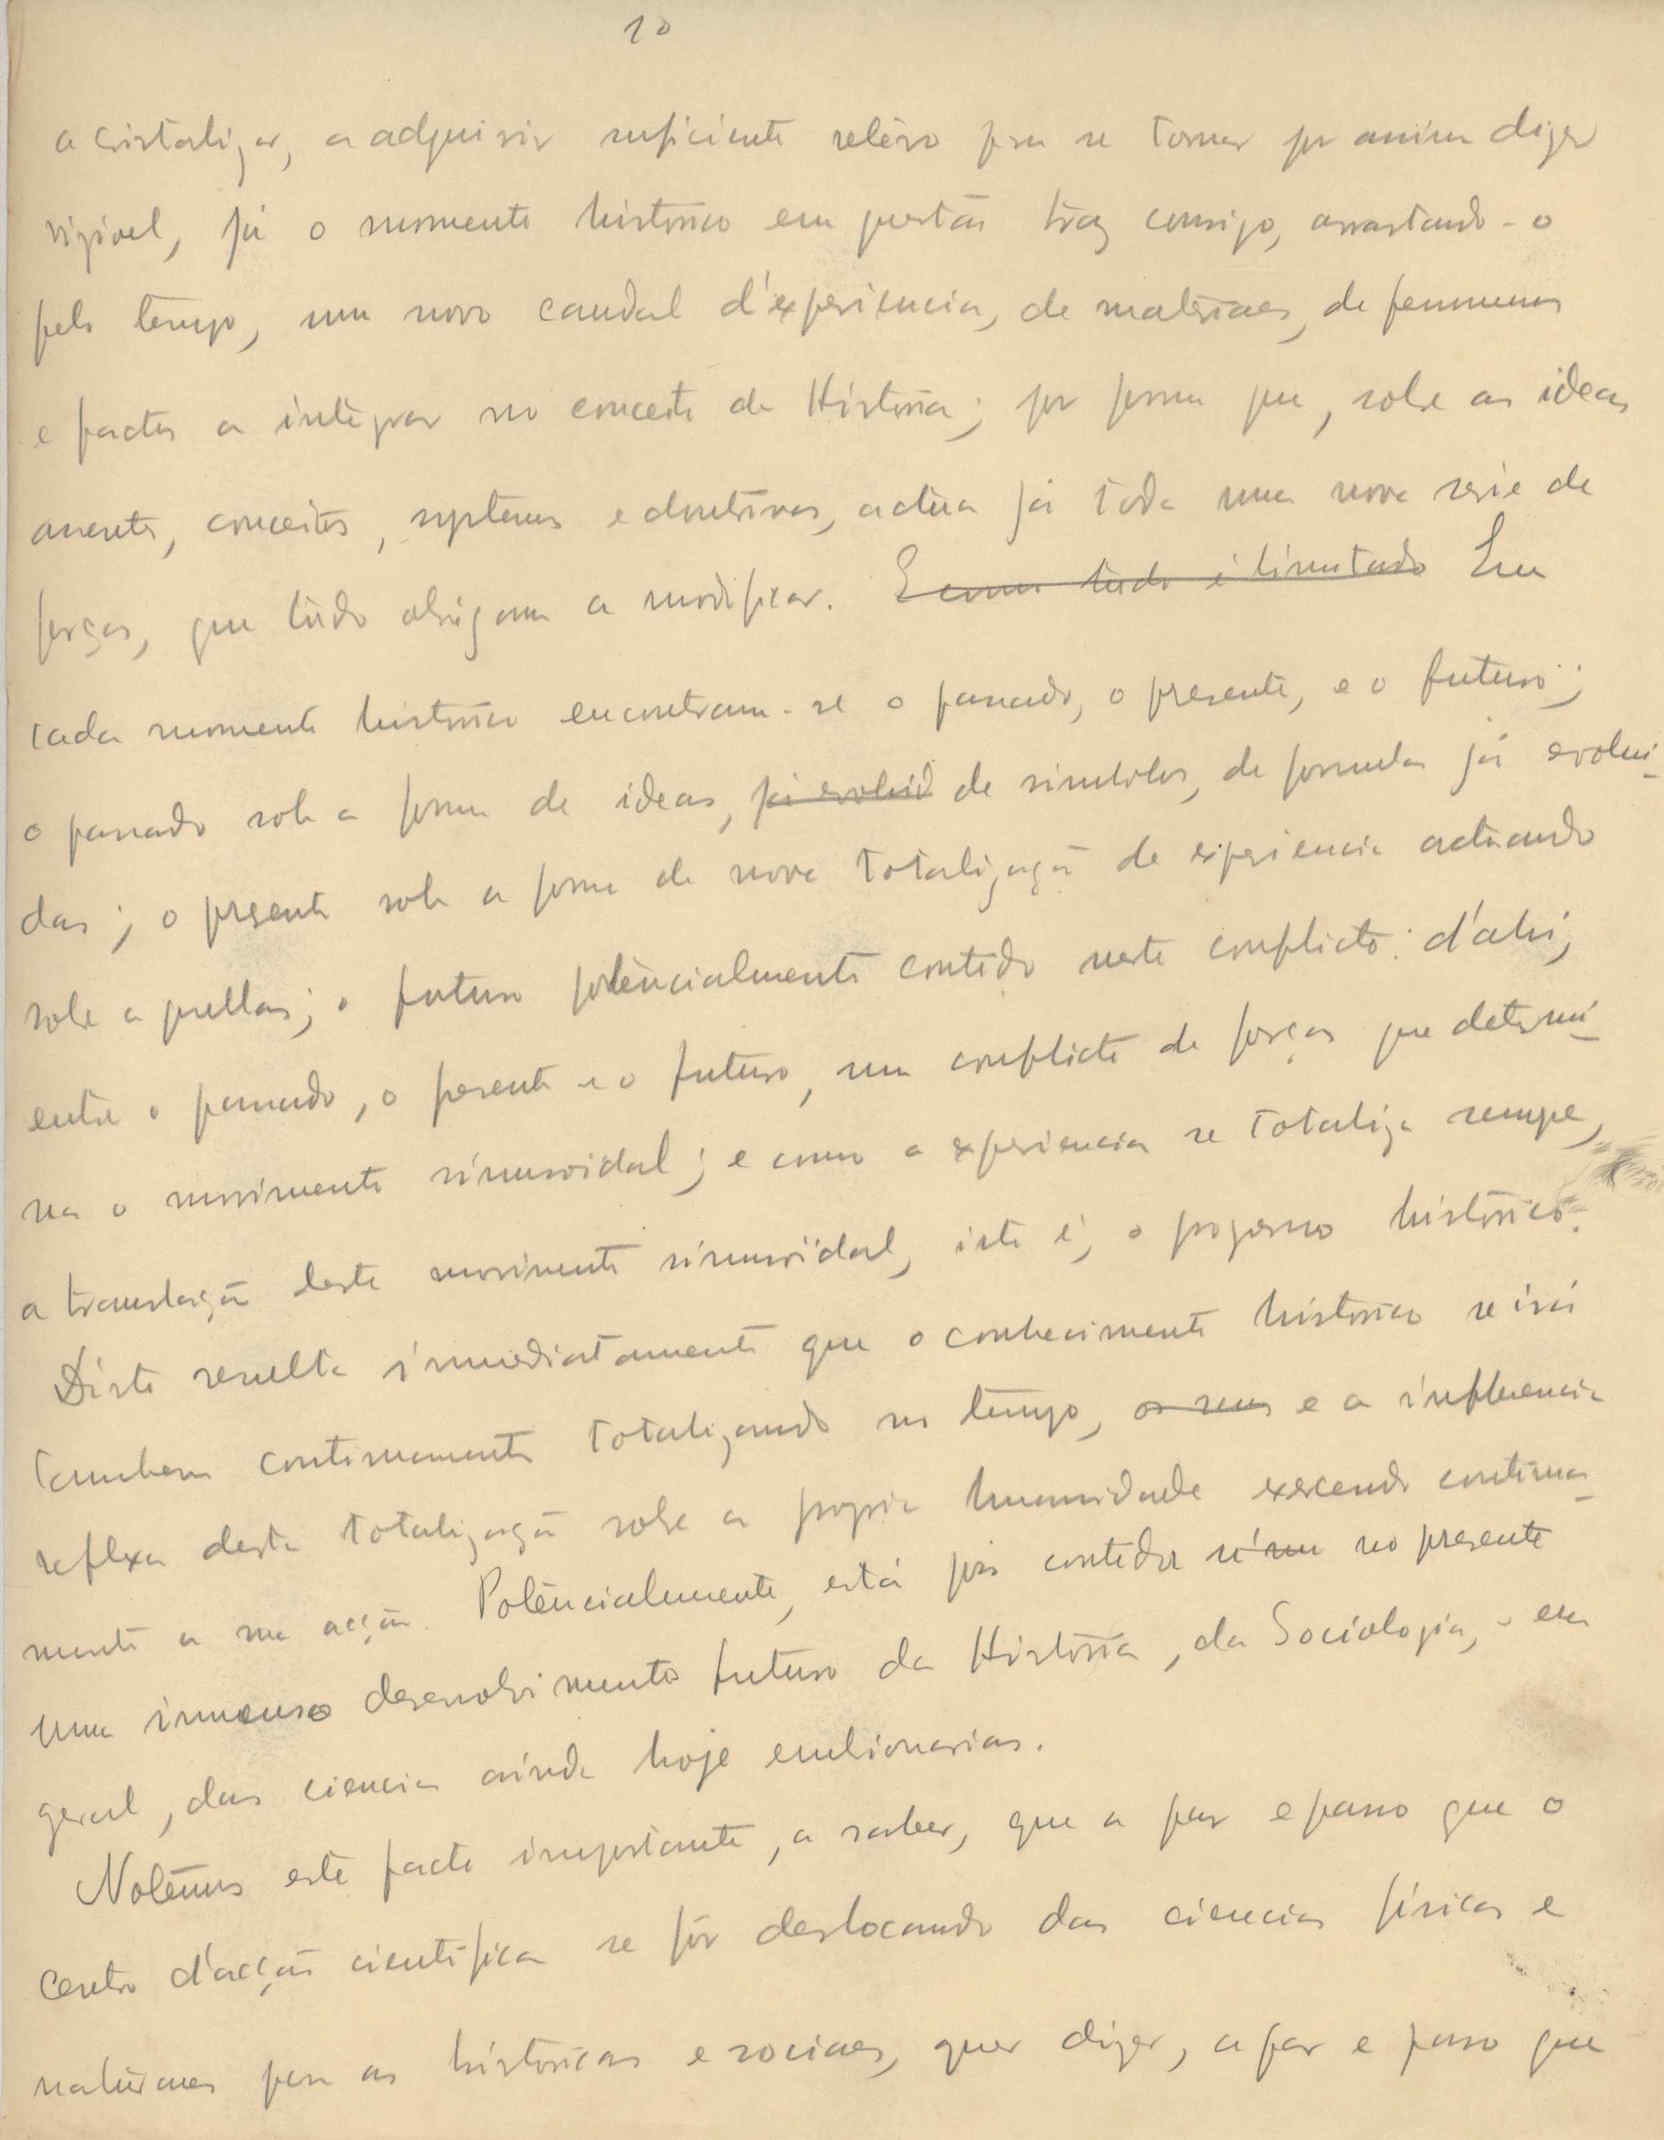 10
a cristalizar, a adquirir suficiente relêvo para se tornar por assim dizer
vizivel, já o momento historico em questão traz consigo, arrastando-o
pelo tempo, um novo caudal d'experiencia, de materiaes, de fenomenos
e factos a integrar no conceito de História; por forma que, sobre as ideas
assente, conceitos, systemas e doutrinas, actúa já toda uma nova serie de
forças, que tudo obrigam a modificar. E como tudo é limitado Em
cada momento historico encontram-se o passado, o presente, e o futuro;
o passado sob a forma de ideas, já evoluid de simbolos, de formulas já evolui-
das; o presente sob a forma de nova totalização de experiencia actuando
sobre aquellas; o futuro potêncialmente contido neste conflicto: d'ahi,
entre o passado, o presente e o futuro, um conflicto de forças que determi-
na o movimento sinusoidal; e como a experiencia se totaliza sempre,
a translação deste movimento sinusoidal, isto é, o progresso histórico.
Disto resulta immediatamente que o conhecimento historico se irá
tambem continuamente totalizando no tempo, os seus e a influencia
reflexa desta totalização sobre a propria humanidade exercendo continua-
mente a sua acção. Potêncialmente, está pois contido no presente
um immenso desenvolvimento futuro da História, da Sociologia, e em
geral, das ciencias ainda hoje embrionarias.
Notêmos este facto importante, a saber, que a par e passo que o
centro d'acção cientifica se fôr deslocando das ciencias físicas e
naturaes para as historicas e sociaes, quer dizer, a par e passo que